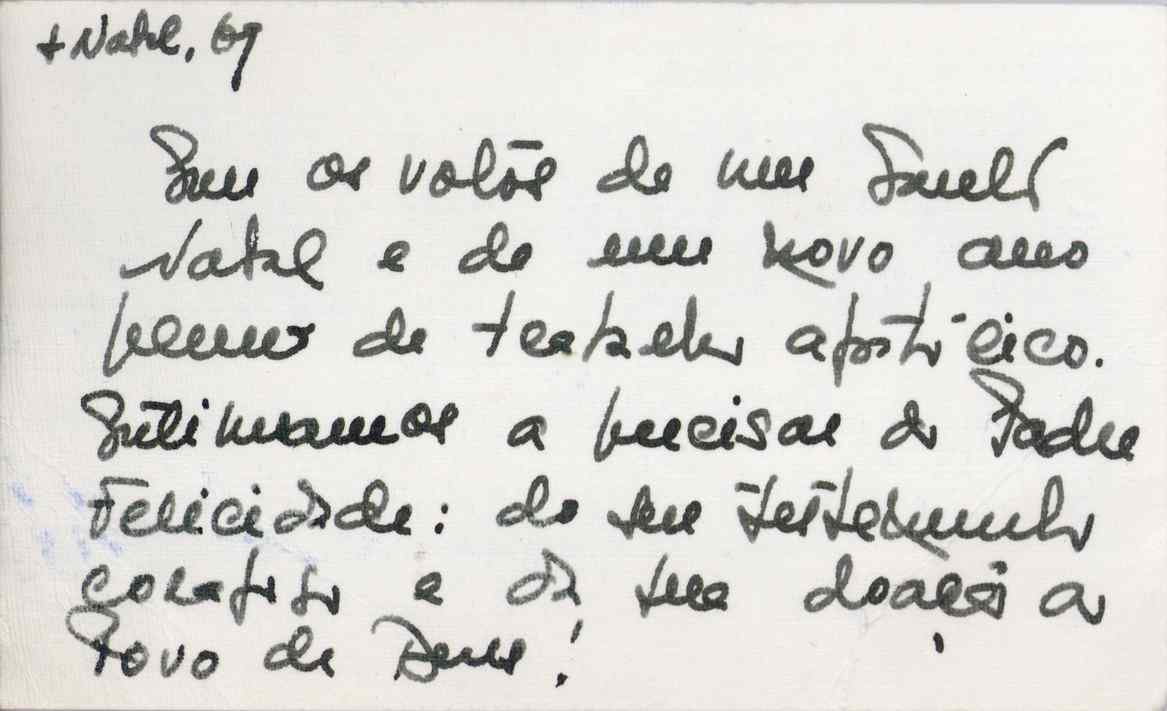 + Natal, 69
os votos de um Santo
Natal e de um novo ano
pleno de trabalho apostólico.
Continuamos a precisar do Padre
Felicidade: do seu testemunho
corajoso e da sua doação ao
Povo de Deus!